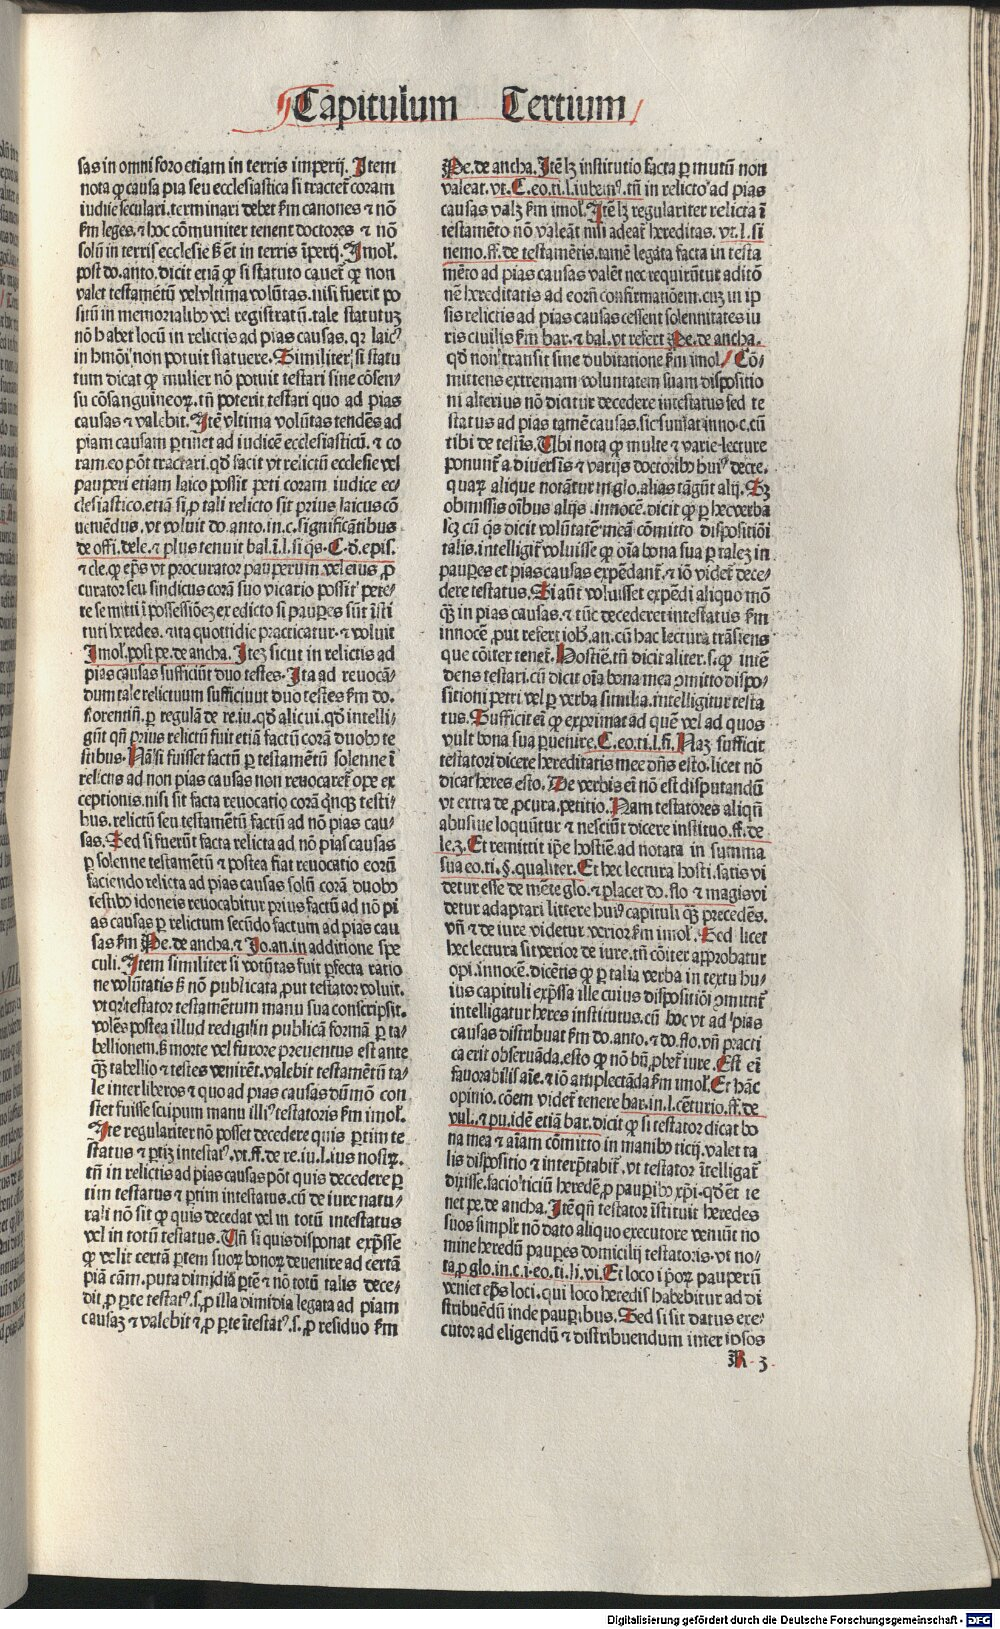 Capitulum Tertium
sas in omni foro etiam in terris imperij. Item
nota ꝙ causa pia seu ecclesiastica si tractet̃ coram
iudice seculari. terminari debet ẜm canones ⁊ nõ
ẜm leges. ⁊ hoc cõmuniter tenent doctores ⁊ nõ
solũ in terris ecclesie ß ẽt in terris ĩperij. Imol̃.
post do. anto. dicit etiã ꝙ si statuto cauet̃ ꝙ non
valet testamẽtũ vel vltima volũtas. nisi fuerit po
situ in memorialibꝰ vel registratũ. tale statutuꝫ
nõ habet locũ in relictis ad pias causas. qꝛ laicꝰ
in hmõi non potuit statuere. Similiter si statu
tum dicat ꝙ mulier nõ potuit testari sine cõsen/
su cõsanguineoꝝ. tñ poterit testari quo ad pias
causas ⁊ valebit. Itẽ vltima volũtas tendẽs ad
piam causam ꝑtinet ad iudicẽ ecclesiasticũ. ⁊ co
ram eo põt tractari. qđ facit vt relictũ ecclesie vel
pauperi etiam laico possit peti coram iudice ec/
clesiastico. etiã si ꝓ tali relicto sit prius laicus cõ
uenẽdus. vt voluit do. anto. in. c. significãtibus
de offi. dele. ⁊ plus tenuit bal. ĩ. l. si q̃s. C. đ. epis.
⁊ cle. ꝙ ep̃s vt procurator pauperum vel eius ꝓ
curator seu sindicus corã suo vicario possit pete/
re se mitti ĩ possessiõeꝫ ex edicto si paupes sũt ĩsti
tuti heredes. ⁊ ita quottidie practicatur. ⁊ voluit
Imol̃. post pe. de ancha. Iteꝫ sicut in relictis ad
pias causas sufficiũt duo testes. Ita ad reuocã/
dum tale relictuum sufficiuut duo testes ẜm do.
florentiñ. ꝑ regulã de re. iu. qđ alicui. qđ intelli/
gũt qñ prius relictũ fuit etiã factũ corã duobꝰ te
stibus. Nã si fuisset factũ ꝑ testamẽtũ solenne ĩ
relictis ad non pias causas non reuocaret̃ ope ex
ceptionis. nisi sit facta reuocatio corã q̃nqꝫ testi/
bus. relictũ seu testamẽtũ factũ ad nõ pias cau/
sas. Sed si fuerũt facta relicta ad nõ pias causas
ꝑ solenne testamẽtũ ⁊ postea fiat reuocatio eorũ
faciendo relicta ad pias causas solũ corã duobꝰ
testibꝰ idoneis reuocabitur prius factũ ad nõ pi
as causas ꝑ relictum secũdo factum ad pias cau
sas ẜm Pe. de ancha. ⁊ Jo. an. in additione spe
culi. Item similiter si volũtas fuit ꝑfecta ratio
ne volũtatis ß nõ publicata ꝓut testator voluit.
vt qꝛ testator testamẽtum manu sua conscripsit.
volẽs postea illud redigi in publicã formã ꝑ ta/
bellionem. ß morte vel furore preuentus est ante
q̃ꝫ tabellio ⁊ testes venirẽt. valebit testamẽtũ ta/
le inter liberos ⁊ quo ad pias causas dũmõ con
stet fuisse scriptum manu illiꝰ testatoris ẜm imol̃.
Ite regulariter nõ posset decedere quis ꝑtim te
status ⁊ ꝑtiꝫ intestatꝰ. vt. ff. de re. iu. l. ius nostꝝ.
tñ in relictis ad pias causas põt quis decedere ꝑ
tim testatus ⁊ ꝑtim intestatus. cũ de iure natu/
rali nõ sit ꝙ quis decedat vel in totũ intestatus
vel in totũ testatus. Uñ si quis disponat exp̃sse
ꝙ velit certã ꝑtem suoꝝ bonoꝝ deuenire ad certã
piã cãm. puta dimidiã ꝑtẽ ⁊ nõ totũ talis dece/
dit ꝓ ꝑte testatꝰ. s. ꝓ illa dimidia legata ad piam
causaꝫ ⁊ valebit ⁊ ꝓ ꝑte ĩtestatꝰ. s. ꝓ residuo ẜm
Pe. de ancha. Itẽ lꝫ institutio facta ꝑ mutũ non
valeat. vt. C. eo. ti. l. iubemꝰ. tñ in relicto ad pias
causas valꝫ ẜm imol̃. Itẽ lꝫ regulariter relicta ĩ
testamẽto nõ valeãt nisi adeat̃ hereditas. vt. l. si
nemo. ff. de testamẽtis. tamẽ legata facta in testa
mẽto ad pias causas valẽt nec requirũtur aditõ
nẽ hereditatis ad eorũ confirmatiõem. cuꝫ in ip
sis relictis ad pias causas cessent solennitates iu
ris ciuilis ẜm bar. ⁊ bal. vt refert Pe. de ancha.
qđ non transit sine dubitatione ẜm imol̃. Cõ/
mittens extremam voluntatem suam dispositio
ni alterius nõ dicitur decedere intestatus sed te
status ad pias tamẽ causas. sic sumat̃ inno. c. cũ
tibi de testis. Ubi nota ꝙ multe ⁊ varie lecture
ponunt̃ a diuersis ⁊ varijs doctoribꝰ huiꝰ decre.
quaꝝ alique notãtur in glo. alias tãgũt alij. Sꝫ
obmissis oĩbus alijs. innocẽ. dicit ꝙ ꝑ hec verba
sꝫ cũ q̃s dicit volũtatẽ meã cõmitto dispositiõi
talis. intelligit̃ voluisse ꝙ oĩa bona sua ꝑ taleꝫ in
pauperes et pias causas expẽdant̃. ⁊ iõ videt̃ dece/
dere testatus. Si aũt voluisset expẽdi aliquo mõ
q̃ꝫ in pias causas. ⁊ tũc decederet intestatus ẜm
innocẽ. ꝓut refert ioh̃. an. cũ hac lectura trãsiens
que cõiter tenet̃. Hostiẽ. tñ dicit aliter. s. ꝙ intẽ
dens testari. cũ dicit oĩa bona mea ꝯmitto dispo/
sitioni petri vel ꝑ verba similia. intelligitur testa
tus. Sufficit ei ꝙ exprimat ad quẽ vel ad quos
vult bona sua ꝑuenire. C. eo. ti. l. fi. Naꝫ sufficit
testatori dicere hereditatis mee dñs esto. licet nõ
dicat heres esto. De verbis ei nõ est disputandũ
vt extra de ꝓcura. petitio. Nam testatores aliqñ
abusiue loquũtur ⁊ nesciũt dicere instituo. ff. de
le. 3. Et remittit ip̃e hostiẽ. ad notata in summa
sua eo. ti. §. qualiter. Et hec lectura hosti. satis vi
detur esse de mẽte glo. ⁊ placet do. flo ⁊ magis vi
detur adaptari littere huiꝰ capituli q̃ꝫ precedẽs.
vñ ⁊ de iure videtur verior ẜm imol̃. Sed licet
hec lectura sit verior de iure. tñ cõiter approbatur
opi. innocẽ. dicẽtis ꝙ ꝑ talia verba in textu hu/
ius capituli exp̃ssa ille cuius dispositiõi ꝯmittit̃
intelligatur heres institutus. cũ hoc vt ad pias
causas distribuat ẜm do. anto. ⁊ do. flo. vñ practi
ca erit obseruãda. esto ꝙ nõ bñ ꝓbet̃ iure. Est ei
fauorabilis aĩe. ⁊ iõ amplectãda ẜm imol̃. Et hãc
opinio. cõem videt̃ tenere bar. in. l. cẽturio. ff. de
vul. ⁊ pu. idẽ etiã bar. dicit ꝙ si testator dicat bo
na mea ⁊ aĩam cõmitto in manibꝰ ticij. valet ta
lis dispositio ⁊ interp̃tabit̃. vt testator ĩtelligat̃
dixisse. facio ticiũ heredẽ ꝓ pauꝑibꝰ xp̃i. qđ ẽt te
net pe. de ancha. Itẽ qñ testator ĩstituit heredes
suos simpl̃r nõ dato aliquo executore veniũt no
mine heredũ pauꝑes domicilij testatoris. vt no/
ta. ꝓ glo. in. c. i. eo. ti. li. vi. Et loco ip̃oꝝ pauperũ
veniet ep̃s loci. qui loco heredis habebitur ad di
stribuẽdũ inde pauꝑibus. Sed si sit datus exe/
cutor ad eligendũ ⁊ distribuendum inter ipsos
R 3
Digitalisierung gefördert durch die Deutsche Forschungsgemeinschaft - DFG